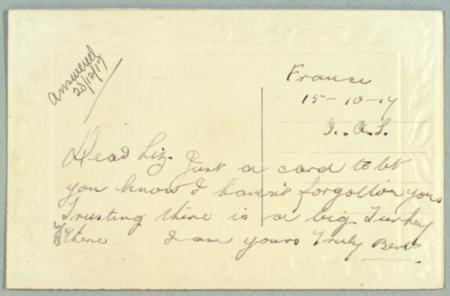 answered
28/12/17
France
15-10-17
Dead Liz. Just a card to let
you know I haven't forgotton you
Trusting there is a big Turkey
there I am yours Truly Bert